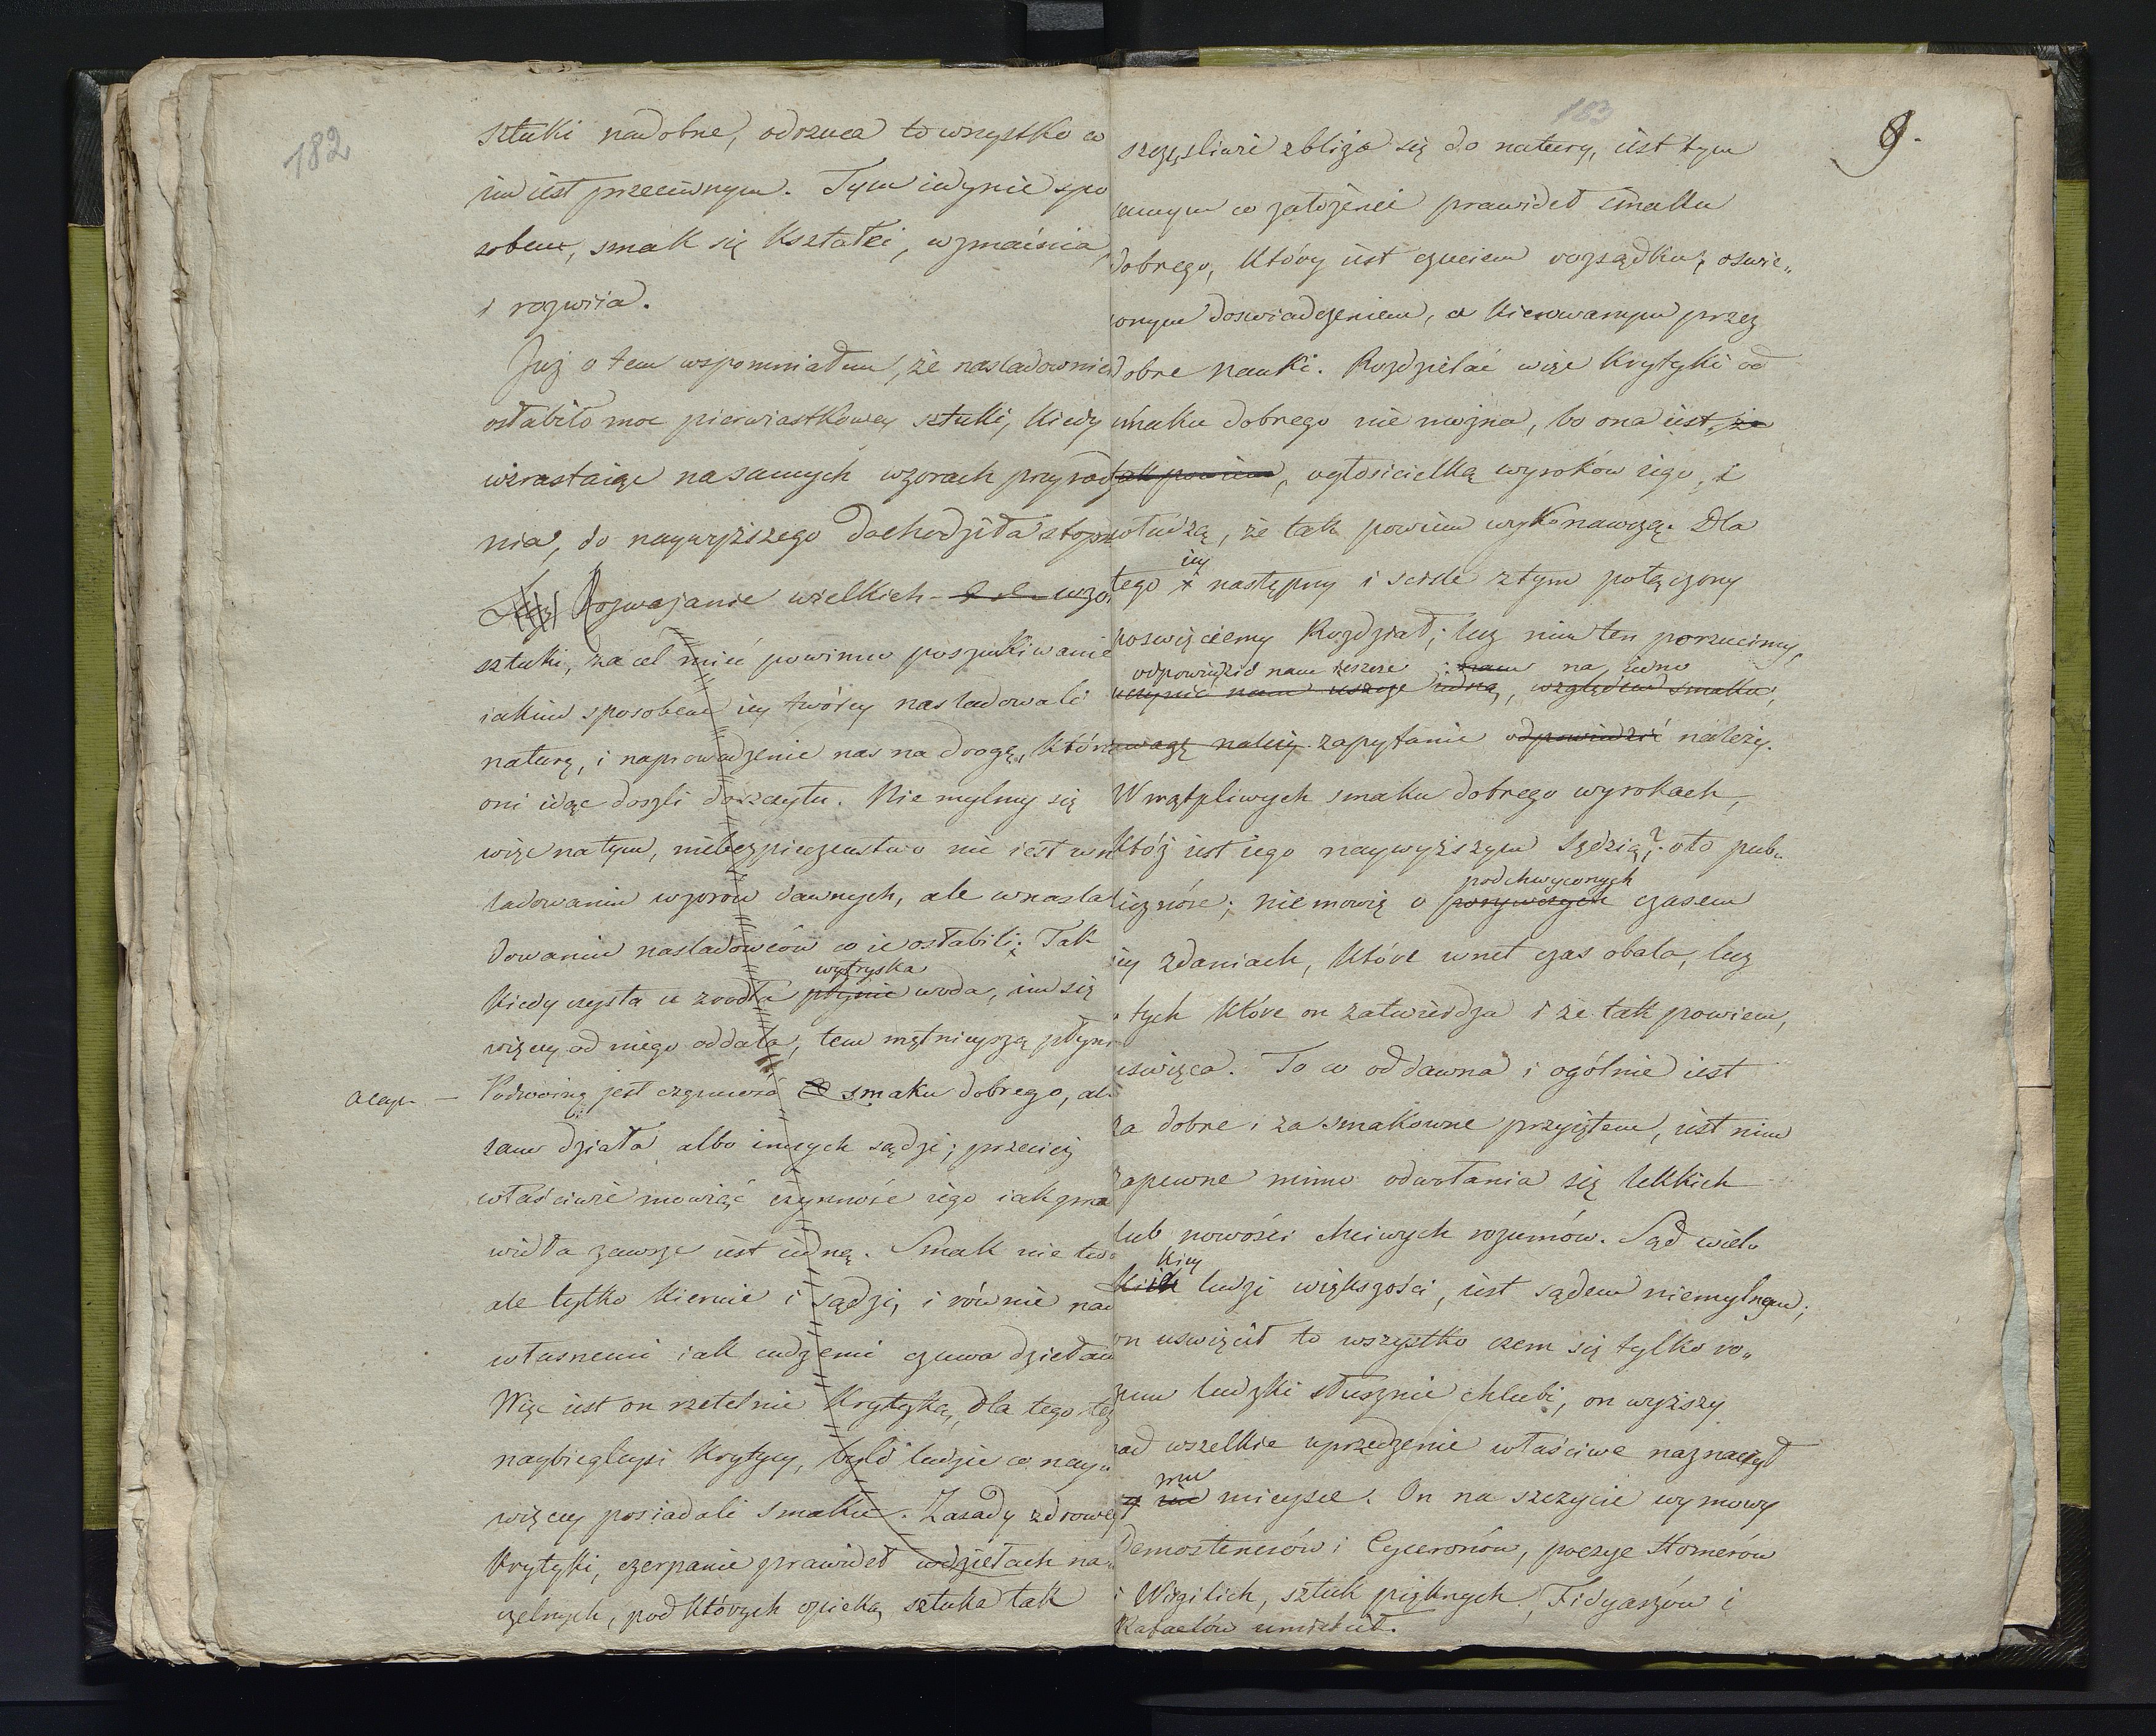 182
sztuki nadobne, odrzuca to wszystko co
im iest przeciwnym. Tym iedynie spo
sobem, smak się kształci, wzmaćnia,
i rozwiia.
Już o tem wspomniałem, że nasladownic
osłabiło moc pierwiastkowey sztuki, kiedy
wzrastaiąc na samych wzorach przyrod
nia, do naywyższego dochodziła stopn
Rozważanie wielkich wzo
sztuki, za cel mieć powinno poszukiwanie
iakim sposobem iey twórcy nasladowali
naturę, i naprowadzenie nas na drogę, któr
oni idąc doszli do szczytu. Nie mylmy się
więc na tym, niebezpieczeństwo nie iest w na
ladowaniu wzorów dawnych, ale w nasla
dowaniu nasladowców co ie osłabili; Tak
wytryska
Kiedy czysta ze zrodła płynie woda, im się
więcey od niego oddala, tem mętnieyszą płyni
a capi — Podwoiną jest czynność smaku dobrego, al
sam działa albo innych sądzi; przecież
właściwie mowiąc czynność iego iak pra
widła zawsze iest iedną. Smak nie two
ale tylko kieruie i sądzi, i równie nad
własnemi iak cudzemi czuwa dziełam
Więc iest on rzetelnie krytyką, dla tego też
naybieglejsi krytycy, byli ludzie co nay„
więcey posiadali smaku. Zasady zdrowey
krytyki, czerpanie prawideł w dziełach na„
czelnych, pod których opieką sztuka tak
183
9.
szczęsliwie zbliża się do natury, iest tym
samym co założenie prawideł smaku
dobrego, który iest czuciem rozsądku, oswie„
conym doswiadczeniem, a kierowanym przez
dobre nauki. Rozdzielać więc krytyki od
smaku dobrego nie można, bo ona iest, że
tak powiem, ogłosicielką wyroków iego, i
że tak powiem wykonawczą. Dla
iey
tego x następny i scisle z tym połączony
poswięciemy Rozdział; lecz nim ten porzucimy,
odpowiedzieć nam ieszcze na iedno
uczynić nam ieszcze iedną, względem smaku,
uwagę należy. zapytanie odpowiedzieć należy.
W wątpliwych smaku dobrego wyrokach,
któż iest iego naywyższym Sędzią? oto pub„
podchwyconych
liczność; nie mowię o porywczych czasem
iey zdaniach, które wnet czas obala, lecz
o tych które on zatwierdza i że tak powiem,
uswięca. To co od dawna i ogólnie iest
za dobre i za smakowne przyiętem, iest nim
zapewne mimo odwołania się lekkich
lub nowości chciwych rozumów. Sąd wiel„
kiey
kich ludzi większości, iest sądem niemylnym;
on uswięcił to wszystko czem się tylko ro„
zum ludzki słusznie chlubi, on wyższy
nad wszelkie uprzedzenie właściwe naznaczył
mu
im mieysce. On na szczycie wymowy
Demostenesów i Cyceronów, poezye Homerów
i Wirgilich, sztuk pięknych, Fidyaszów i
Rafaelów umieścił.